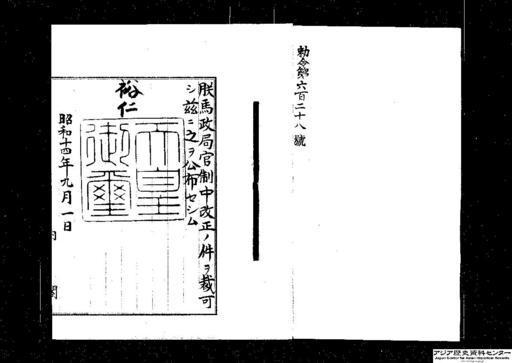 勅令第六百二十八號
朕馬政局官制中改正ノ件ヲ裁可
シ茲ニ之ヲ公布セシム
裕仁
天皇
御璽
昭和十四年九月一日
内閣
アジア歴史資料センター
Japan Center for Asian Historical Records